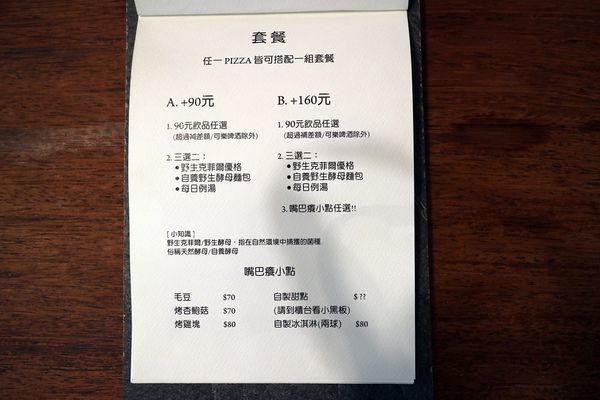 套餐
任一 PIZZA 皆可搭配一組套餐
A. +90元
1. 90元飲品任選
(超過補差額/可樂啤酒除外)
2. 三選二：
•野生克菲爾優格
•自養野生酵母麵包
•每日例湯
B. +160元
1. 90元飲品任選
(超過補差額/可樂啤酒除外)
2. 三選二：
•野生克菲爾優格
•自養野生酵母麵包
•每日例湯
3. 嘴巴癢小點任選!!
[ 小知識 ]
野生克菲爾/野生酵母，指在自然環境中捕獲的菌種
俗稱天然酵母/自養酵母
嘴巴癢小點
毛豆 $70
烤杏鮑菇 $70
烤雞塊 $80
自製甜點 $ ??
(請到櫃台看小黑板)
自製冰淇淋(兩球) $80